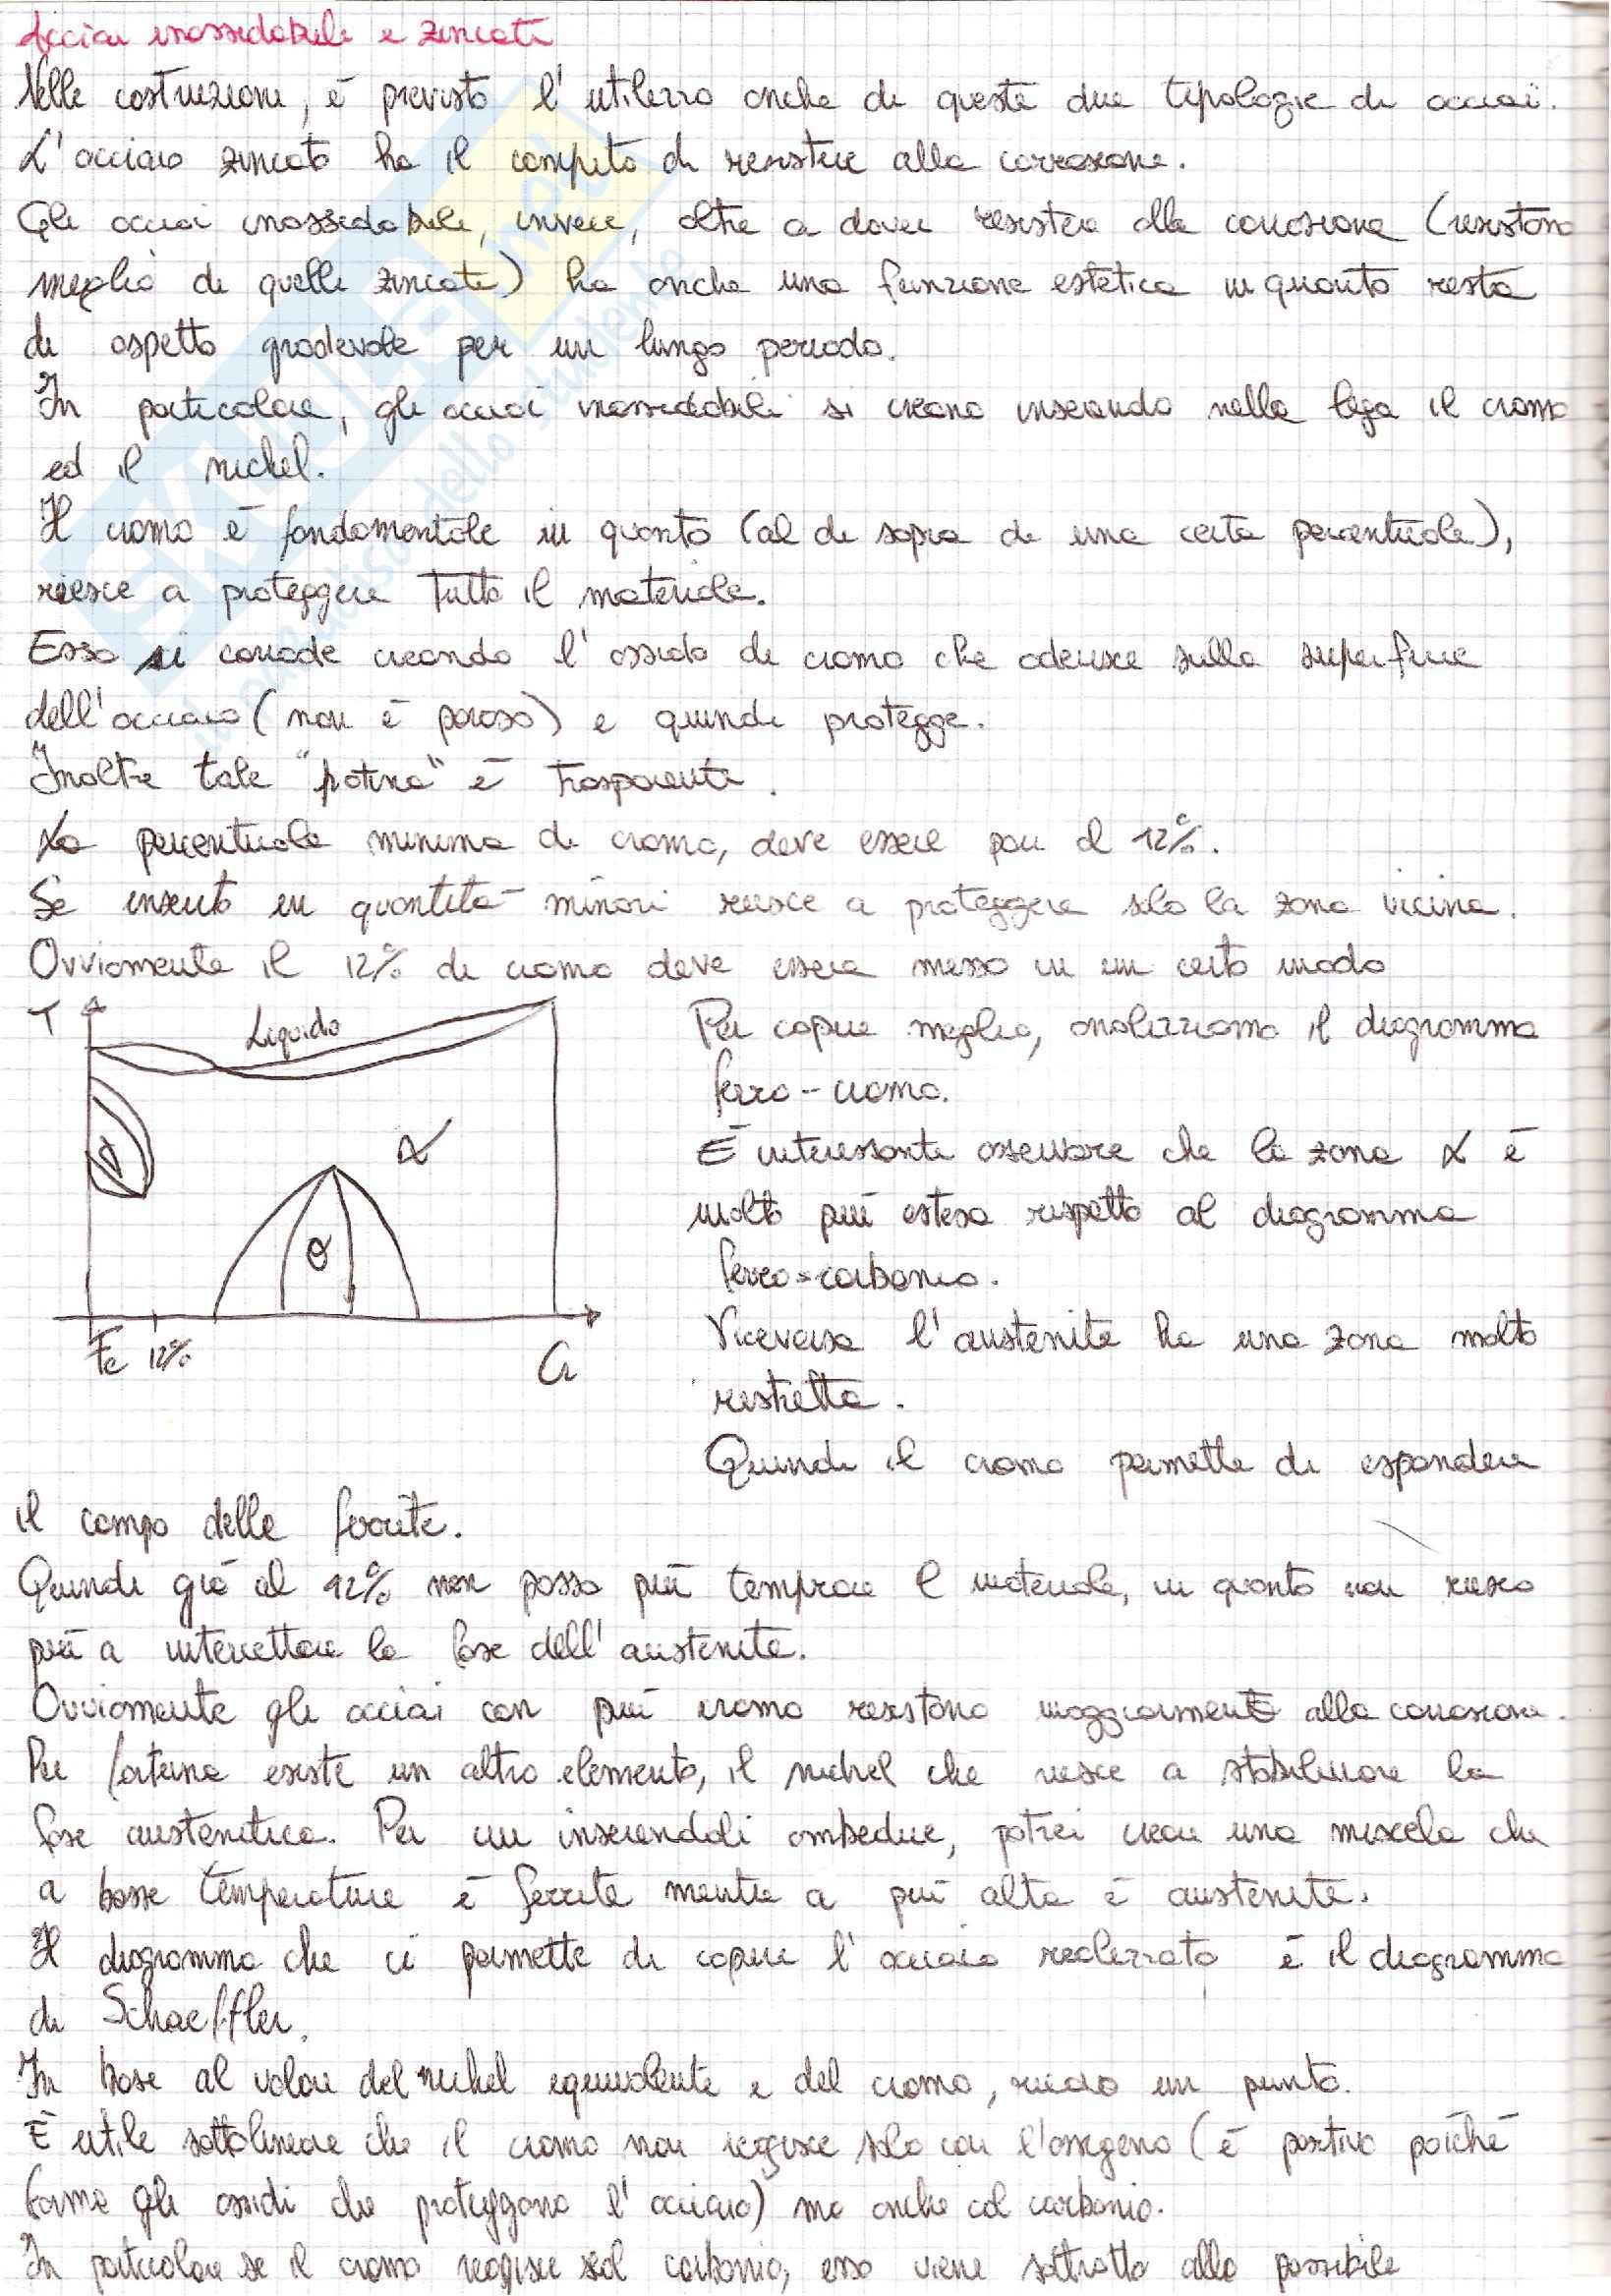 Acciai inossidabili e zincati
Nelle costruzioni, è previsto l'utilizzo anche di queste due tipologie di acciai.
L'acciaio zincato ha il compito di resistere alla corrosione.
Gli acciai inossidabili, invece, oltre a dover resistere alla corrosione (resistono
meglio di quelli zincati) ha anche una funzione estetica in quanto resta
di aspetto gradevole per un lungo periodo.
In particolare, gli acciai inossidabili si creano inserendo nella lega il cromo
ed il nichel.
Il cromo è fondamentale in quanto (al di sopra di una certa percentuale),
riesce a proteggere tutto il materiale.
Esso si corrode creando l'ossido di cromo che aderisce sulla superficie
dell'acciaio (non è poroso) e quindi protegge.
Inoltre tale "patina" è trasparente.
La percentuale minima di cromo, deve essere pari al 12%.
Se inserito in quantità minori riesce a proteggere solo la zona vicina.
Ovviamente il 12% di cromo deve essere messo in un certo modo
T
Liquido
α
θ
Fe 12% Cr
Per capire meglio, analizziamo il diagramma
ferro-cromo.
È interessante osservare che la zona α è
molto più estesa rispetto al diagramma
ferro-carbonio.
Viceversa l'austenite ha una zona molto
ristretta.
Quindi il cromo permette di espandere
il campo delle ferrite.
Quindi già al 12% non posso più temprare il materiale, in quanto non riesco
più a intercettare la fase dell'austenite.
Ovviamente gli acciai con più cromo resistono maggiormente alla corrosione.
Per fortuna esiste un altro elemento, il nichel che riesce a stabilizzare la
fase austenitica. Per cui inserendoli ambedue, potrei creare una miscela che
a basse temperature è ferrite mentre a più alta è austenite.
Il diagramma che ci permette di capire l'acciaio realizzato è il diagramma
di Schaeffler.
In base al valore del nichel equivalente e del cromo, ricavo un punto.
È utile sottolineare che il cromo non reagisce solo con l'ossigeno (è positivo poichè
forma gli ossidi che proteggono l'acciaio) ma anche col carbonio.
In particolare se il cromo reagisce col carbonio, esso viene sottratto alla possibile